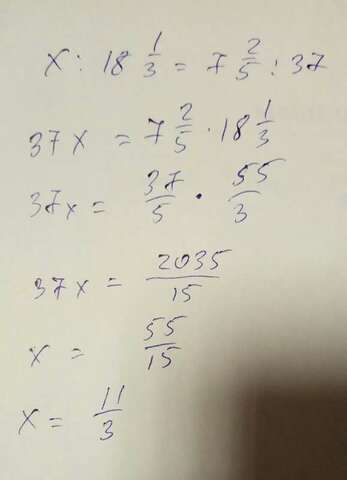 x : 18 1/3 = 7 2/5 : 37
37x = 7 2/5 · 18 1/3
37x = 37/5 · 55/3
37x = 2035/15
x = 55/15
x = 11/3